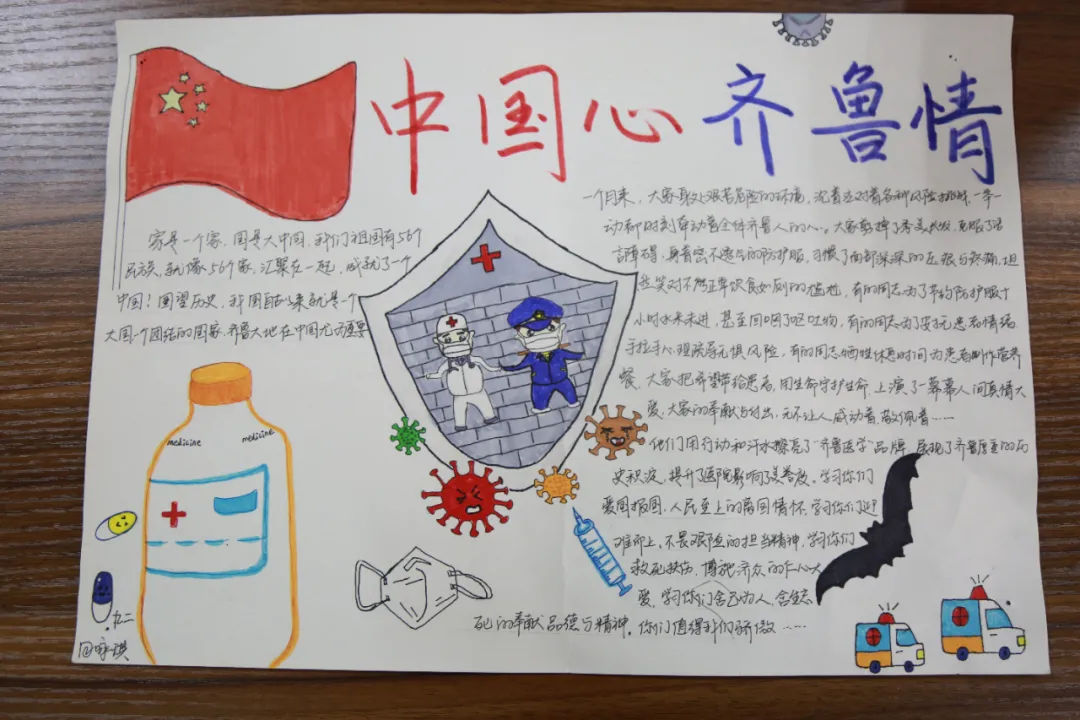 中国心 齐鲁情
家是一个家，国是大中国，我们祖国有56个
民族，就像56个家，汇聚在一起，成就了一个
中国！回望历史，我国自古以来就是一个
大国一个团结的国家，齐鲁大地在中国尤为重要
一个月来，大家身处艰苦危险的环境，沉着应对着各种风险挑战，一举一
动都时刻牵动着全体齐鲁人的心。大家剪掉了秀美长发，克服了语
言障碍，身着密不透气的防护服，习惯了面部深深的压痕与疼痛，坦
然笑对不能正常饮食如厕的尴尬，有的同志为了节约防护服十
小时水米未进，甚至回咽了呕吐物，有的同志为了安抚患者情绪
手拉手心理疏导无惧风险，有的同志牺牲休息时间为患者制作营养
餐，大家把希望带给患者，用生命守护生命，上演了一幕幕人间真情大
爱，大家的奉献与付出，无不让人感动着，敬佩着……
他们用行动和汗水擦亮了“齐鲁医学”品牌，展现了齐鲁厚重的历
史积淀，提升了医院影响了美誉度，学习你们
爱国报国，人民至上的家国情怀，学习你们迎
难而上，不畏艰险的担当精神，学习你们
救死扶伤，博施济众的仁心大
爱，学习你们舍己为人，舍生忘
死的奉献品德与精神，你们值得我们骄傲……
medicine
medicine
九二